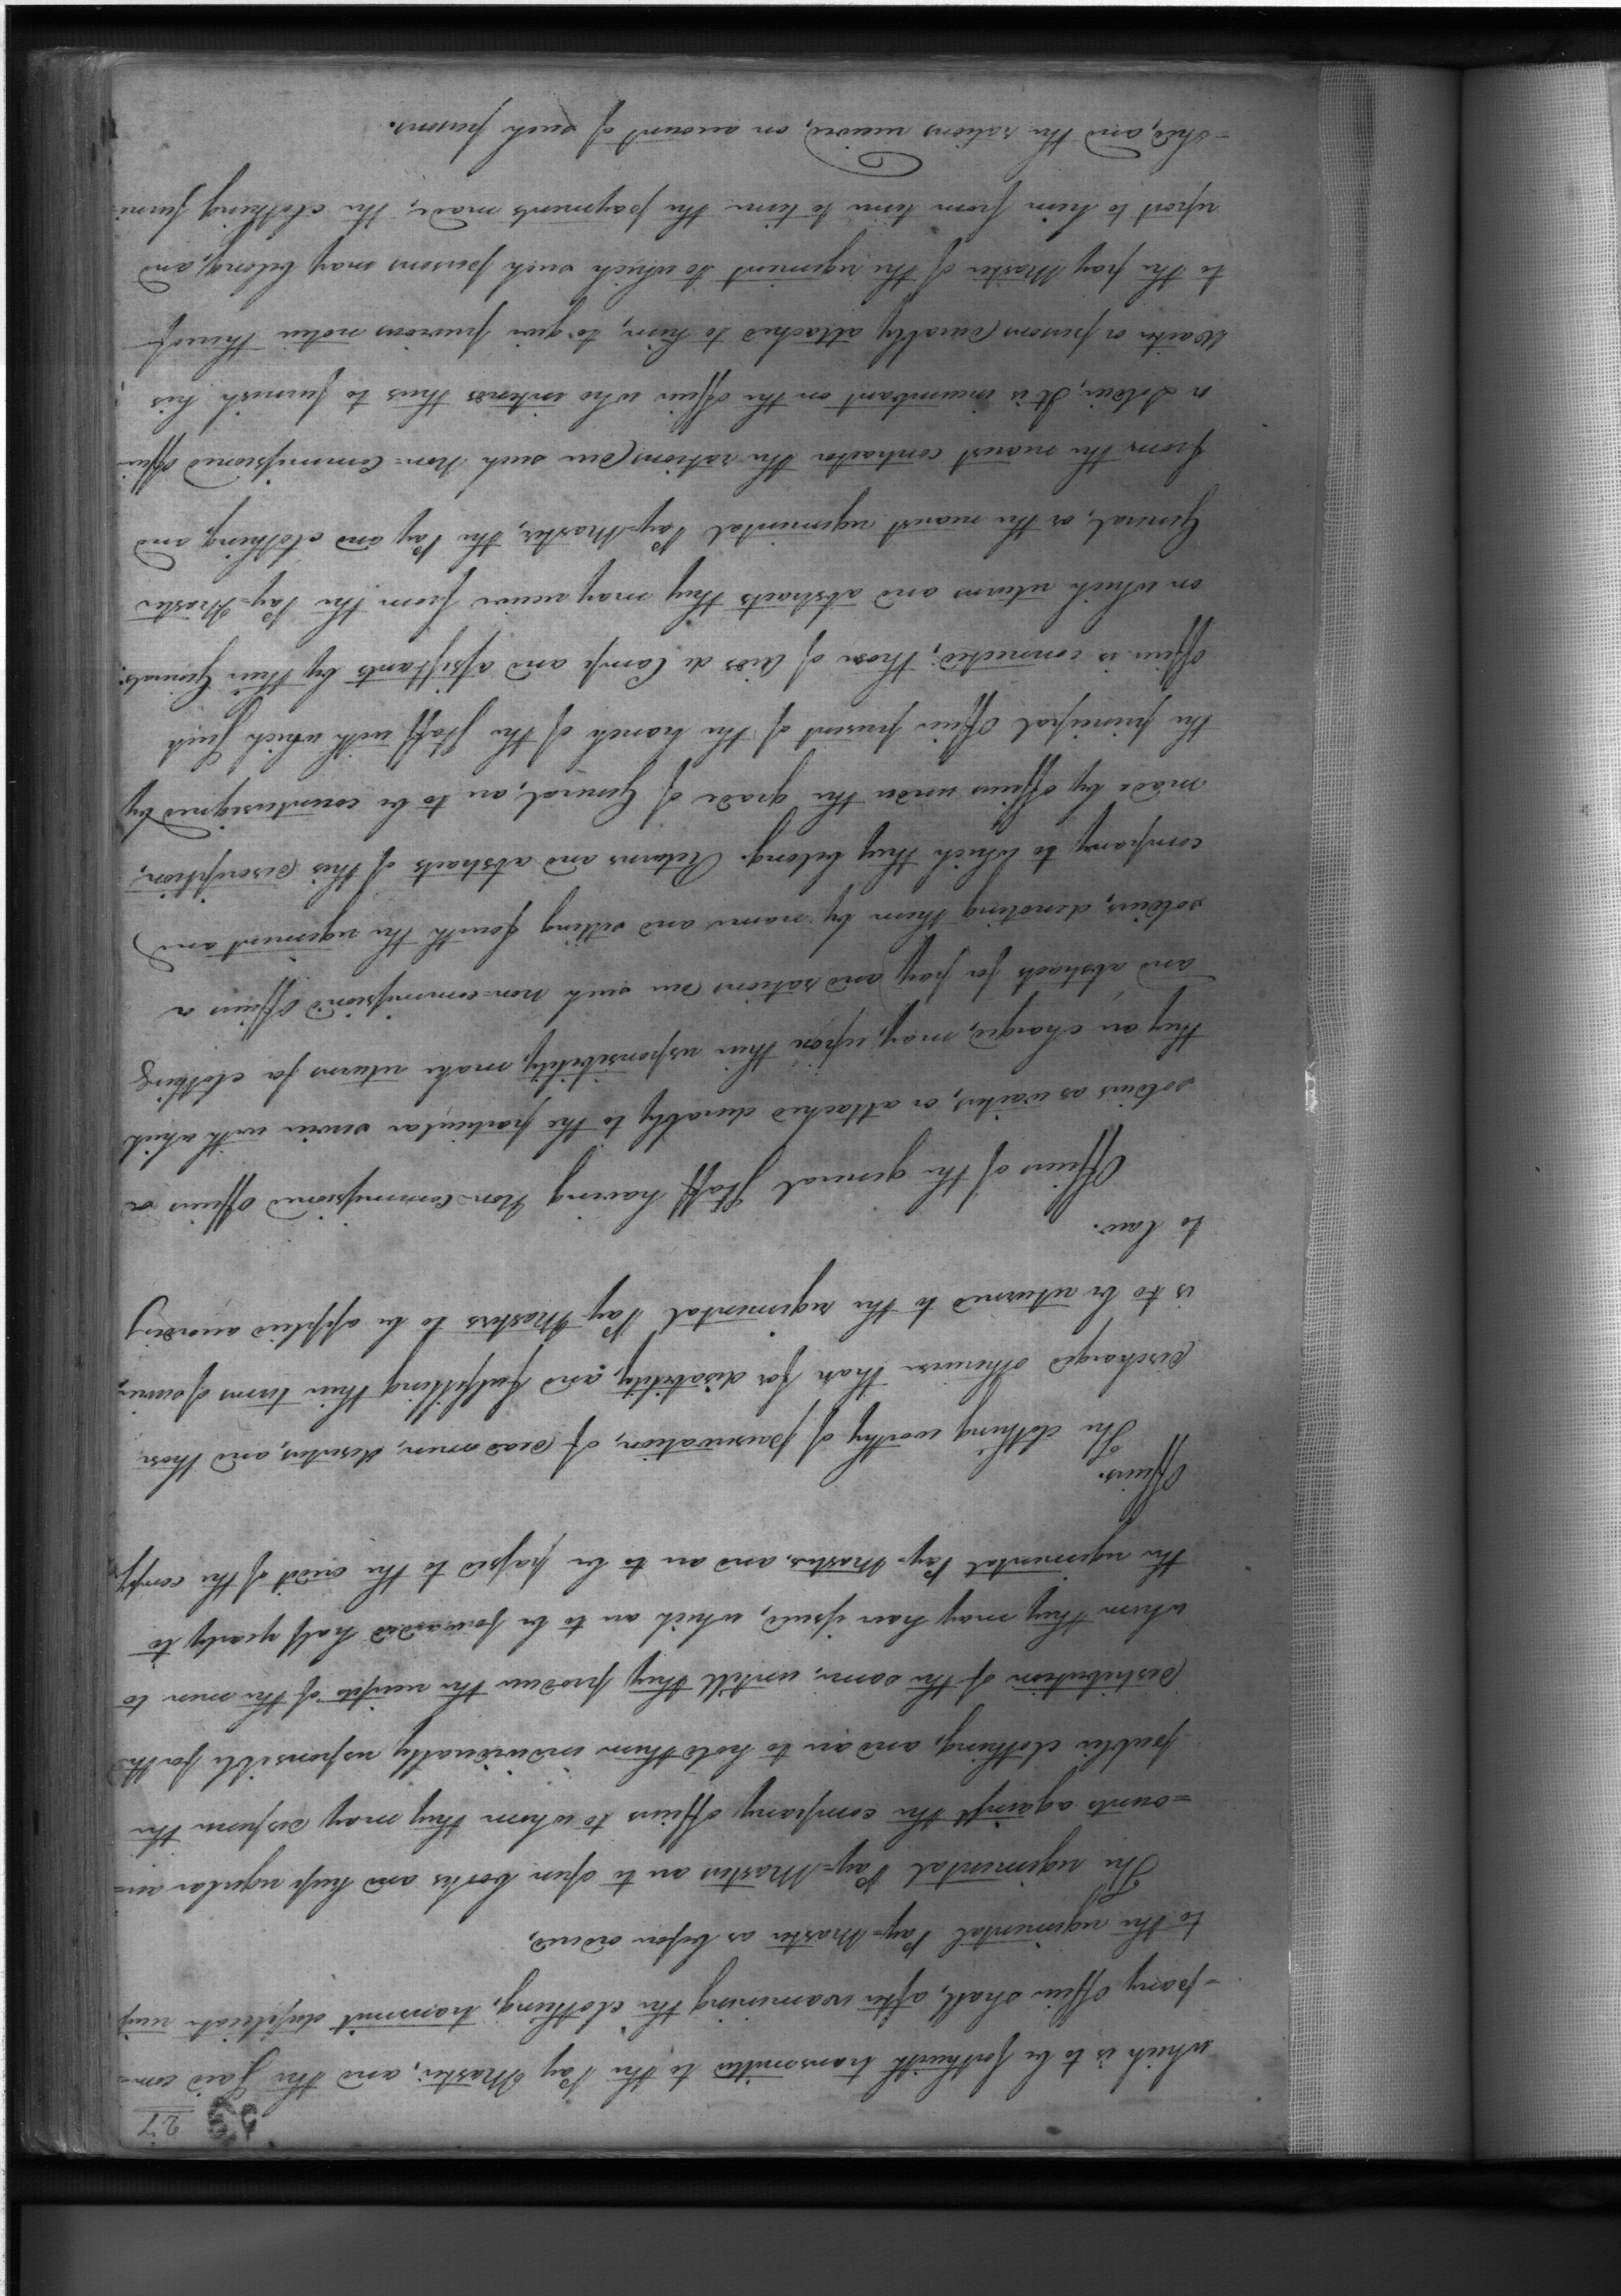 27
39
which is to be forthwith transmitted to the Pay Master, and the said com-
-pany officer shall, after examining the clothing, transmit duplicate
to the regimental Pay=Master as before ordered,
The regimental Pay=Masters are to open books and keep regular acc=
=ounts against the company officers to whom they may dispense the
public clothing, and are to hold them individually responsible for the
distribution of the same, untill they produce the receipts of the men to
whom they may have issued, which are to be forwarded half yearly to
the regimental Pay-Masters, and are to be passed to the credit of the compy
Officers.
The clothing worthy of preservation, of dead men, deserters, and those
discharged otherwise than for disability, and fulfilling their terms of service,
is to be returned to the regimental Pay Masters to be applied according
to law.
Officers of the general Staff having Non-Commissioned officers or
soldiers as waiters, or attached durably to the particular service with which
they are charged, may, upon their responsibility, make returns for clothing
and abstracts for pay and rations due such non-commissioned officers or
soldiers, denoting them by names and setting fourth the regiment and
company to which they belong. Returns and abstracts of this discription,
made by officers under the grade of General, are to be countersigned by
the principal officer present of the branch of the staff with which such
officer is connected; those of Aids de Camp and assistants by their Generals:
on which returns and abstracts they may receive from the Pay=Master
General, or the nearest regimental Pay=Master, the Pay and clothing, and
from the nearest contractor the rations due such Non=Commissioned officer
or Soldier, It is incumbant on the officer who intends thus to furnish his
Waiter or persons durably attached to him, to give previous notice thereof
to the pay Master of the regiment to which such persons may belong, and
report to him from time to time the payments made, the clothing furni-
-shed, and the rations received, on account of such persons.